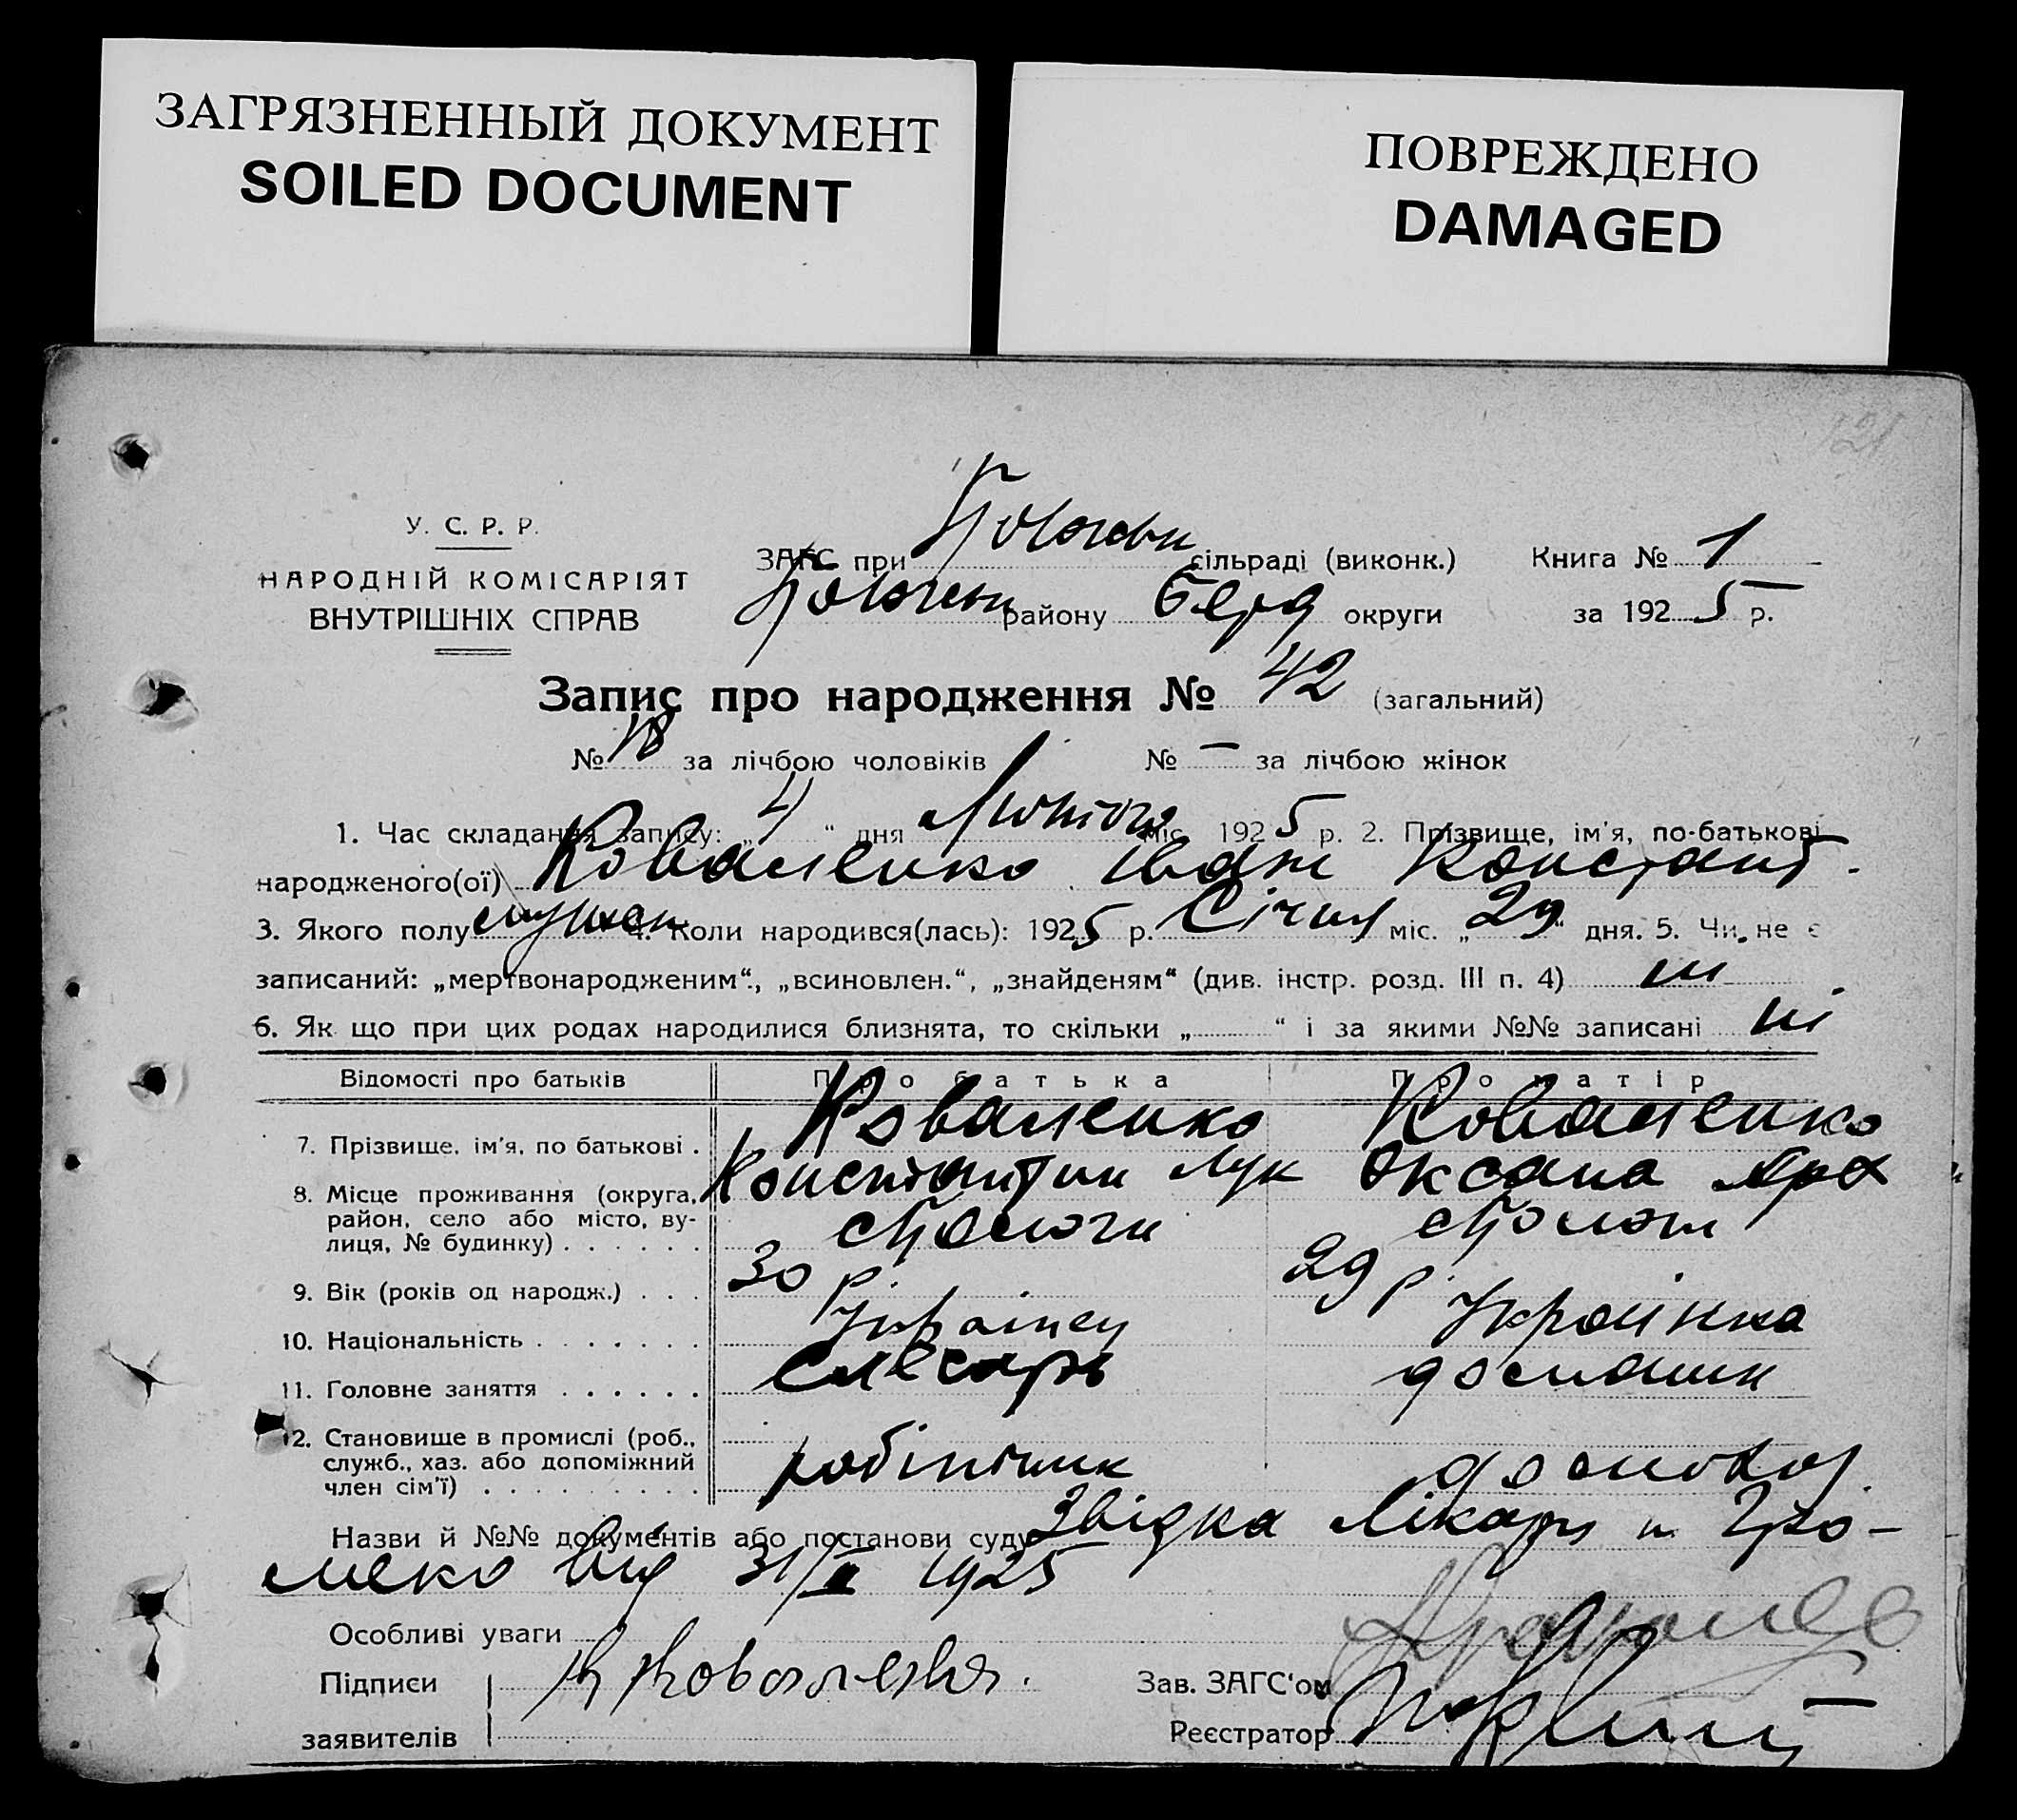 ЗАГРЯЗНЕННЫЙ ДОКУМЕНТ
SOILED DOCUMENT
ПОВРЕЖДЕНО
DAMAGED
121
У. С. Р. Р.
НАРОДНІЙ КОМІСАРІЯТ
ВНУТРІШНІХ СПРАВ
ЗАГС при сільраді (виконк.) Книга № 1
району Берд округи за 1925 р.
Запис про народження № 42 (загальний)
№ 18 за лічбою чоловіків № – за лічбою жінок
1. Час складання запису: „4“ дня Лютого міс. 1925 р. 2. Прізвище, ім'я, по-батькові
народженого(ої) Коваленко Іван Констант.
3. Якого полу мужск 4. Коли народився(лась): 1925 р. Січня міс. „29“ дня. 5. Чи не є
записаний: „мертвонародженим“., „всиновлен.“, „знайденям“ (див. інстр. розд. III п. 4) ні
6. Як що при цих родах народилися близнята, то скільки „ “ і за якими №№ записані ні
Відомості про батьків Про батька Про матір
7. Прізвище, ім'я, по батькові . Коваленко Коваленко
Константин Лук Оксана
8. Місце проживання (округа,
район, село або місто, ву-
лиця, № будинку) . . . . . .
9. Вік (років од народж.) . . . 30 р. 29 р.
10. Національність . . . . . . . Українец Українка
11. Головне заняття . . . . . . Слесарь домашн
12. Становище в промислі (роб.,
служб., хаз. або допоміжний
член сім'ї) . . . . . . . . . робітник
Назви й №№ документів або постанови суду Звідка лікаря
від 31/I 1925
Особливі уваги
Підписи К Коваленко. Зав. ЗАГС'ом
заявителів Реєстратор